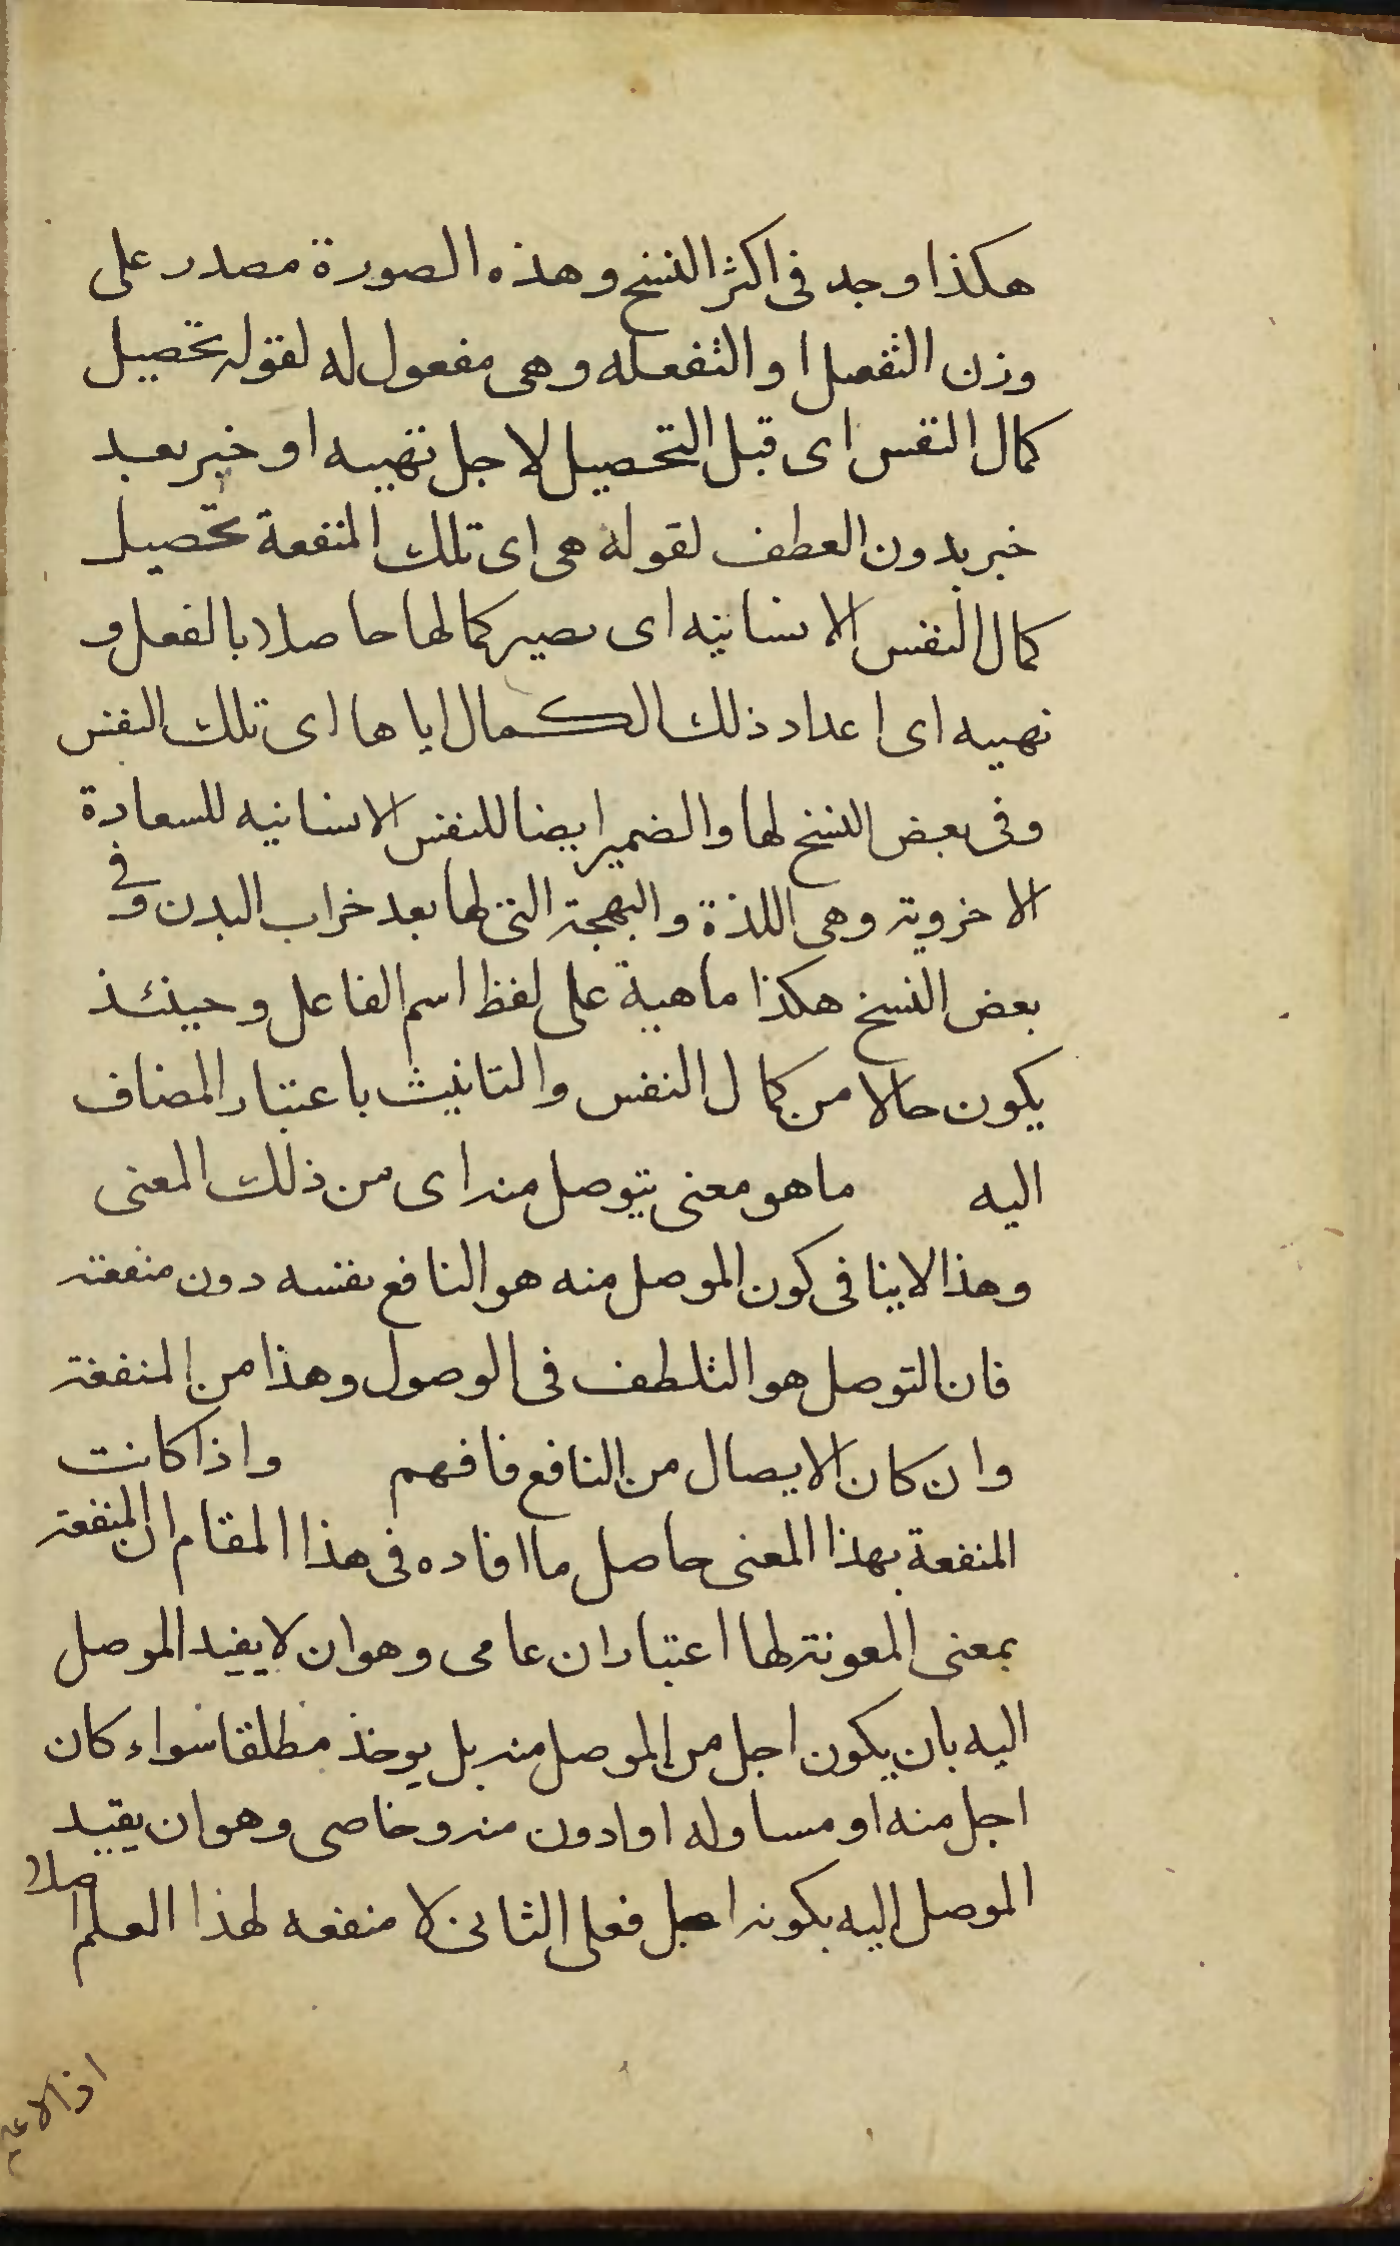 هكذا وجد فى اكثر النسخ وهذه الصورة مصدر على
وزن التفعيل او التفعله وهى مفعول له لقوله تحصيل
كمال النفس اى قبل التحصيل لاجل تهييه او خبر بعد
خبر بدون العطف لقوله هى اى تلك المنفعة تحصيل
كمال النفس الانسانيه اى يصير كمالها حاصلا بالفعل و
تهييه اى اعداد ذلك الكمال اياها اى تلك النفس
وفى بعض النسخ لها والضمير ايضا للنفس الانسانيه للسعادة
الاخروية وهى اللذة والبهجة التى لها بعد خراب البدن وفى
بعض النسخ هكذا ماهية على لفظ اسم الفاعل وحينئذ
يكون حالا من كمال النفس والتانيث باعتبار المضاف
اليه ماهو معنى يتوصل منه اى من ذلك المعنى
وهذا لاينافى كون الموصل منه هو النافع بنفسه دون منفعته
فان التوصل هو التلطف فى الوصول وهذا من المنفعة
وان كان الايصال من النافع فافهم واذا كانت
المنفعة بهذا المعنى حاصل ما افاده فى هذا المقام ان المنفعة
بمعنى المعونة لها اعتباران عامى وهو ان لا يقيد الموصل
اليه بان يكون اجل من الموصل منه بل يوخذ مطلقا سواء كان
اجل منه او مساو له او ادون منه وخاصى وهو ان يقيد
الموصل اليه بكونه اجل فعلى الثانى لا منفعه لهذا العلم اصلا
اذ الاعم